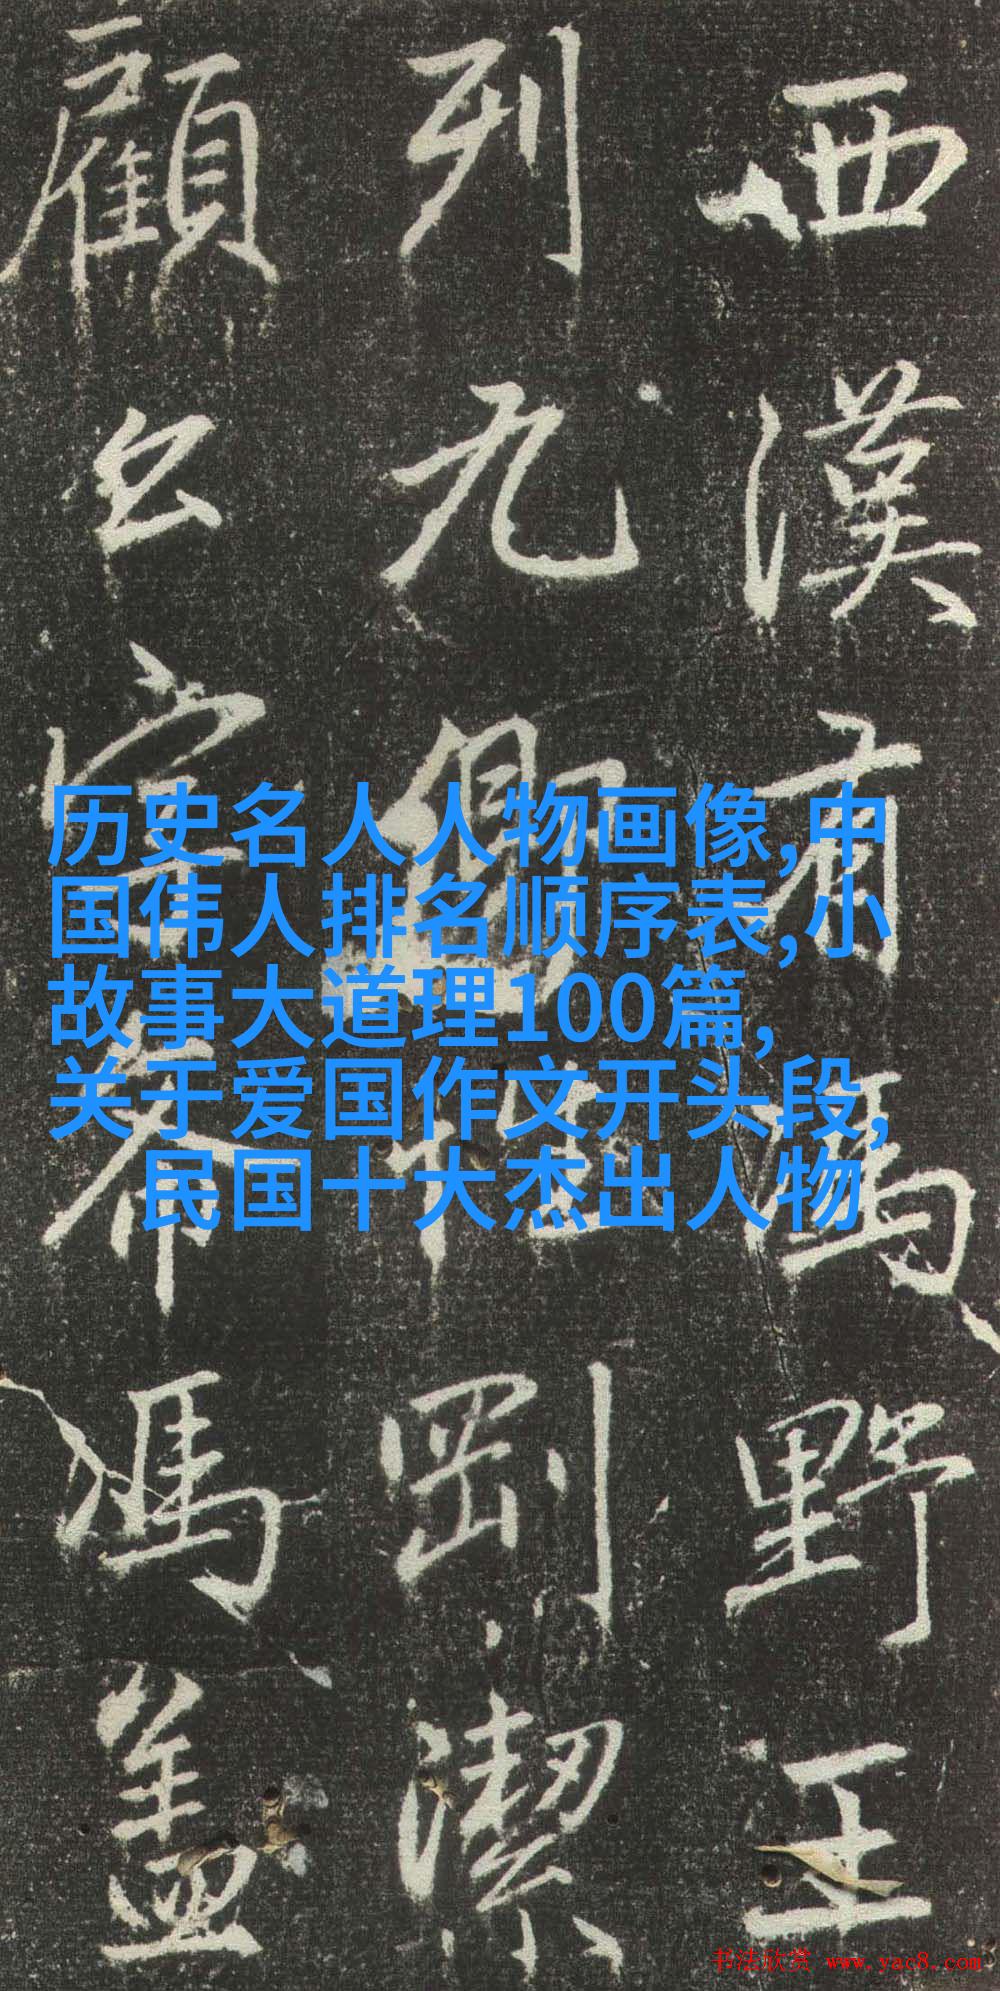 西漢有馮野王
列九卿
剛潔
顧公宣
馮盖
历史名人人物画像,中
国伟人排名顺序表,小
故事大道理100篇,
关于爱国作文开头段,
民国十大杰出人物
书法欣赏 www.yac8.com